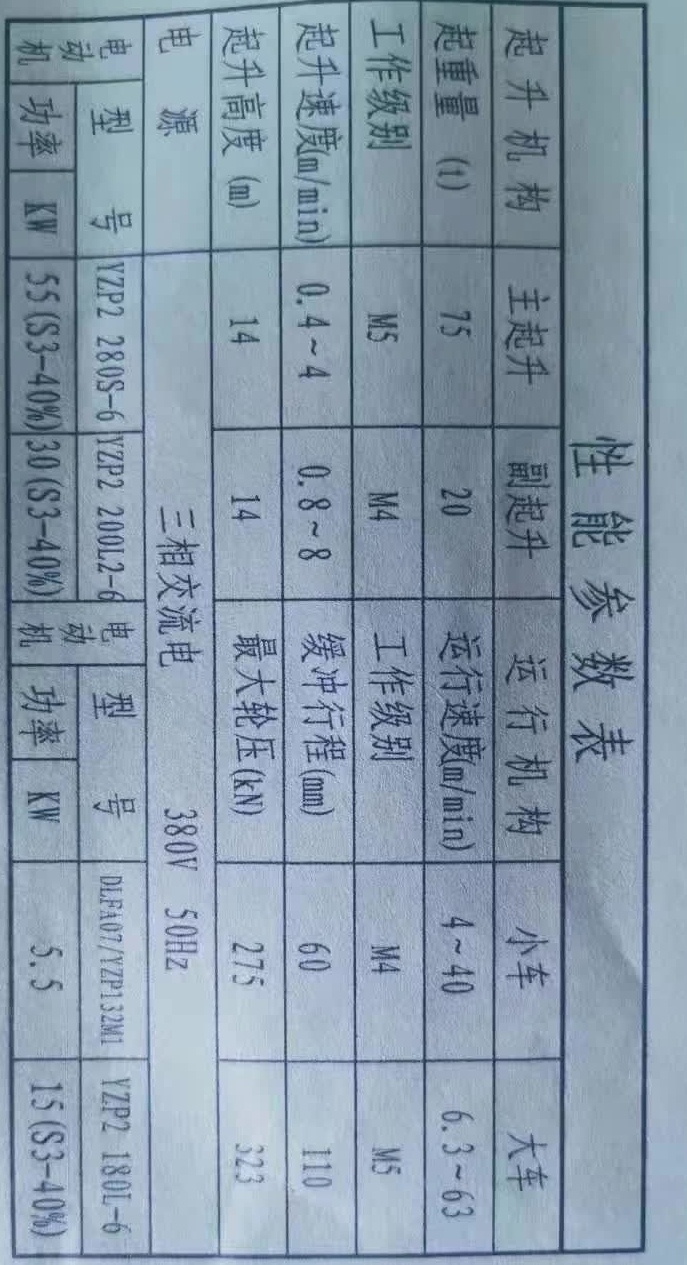 性能参数表
起升机构 主起升 副起升 运行机构 小车 大车
起重量 (t) 75 20 运行速度(m/min) 4~40 6.3~63
工作级别 M5 M4 工作级别 M4 M5
起升速度(m/min) 0.4~4 0.8~8 缓冲行程(mm) 60 110
起升高度 (m) 14 14 最大轮压(kN) 275 323
电源 三相交流电 380V 50Hz
电动机 型号 YZP2 280S-6 YZP2 200L2-6 电动机 型号 DLFA07/YZP132M1 YZP2 180L-6
功率 KW 55(S3-40%) 30(S3-40%) 功率 KW 5.5 15(S3-40%)